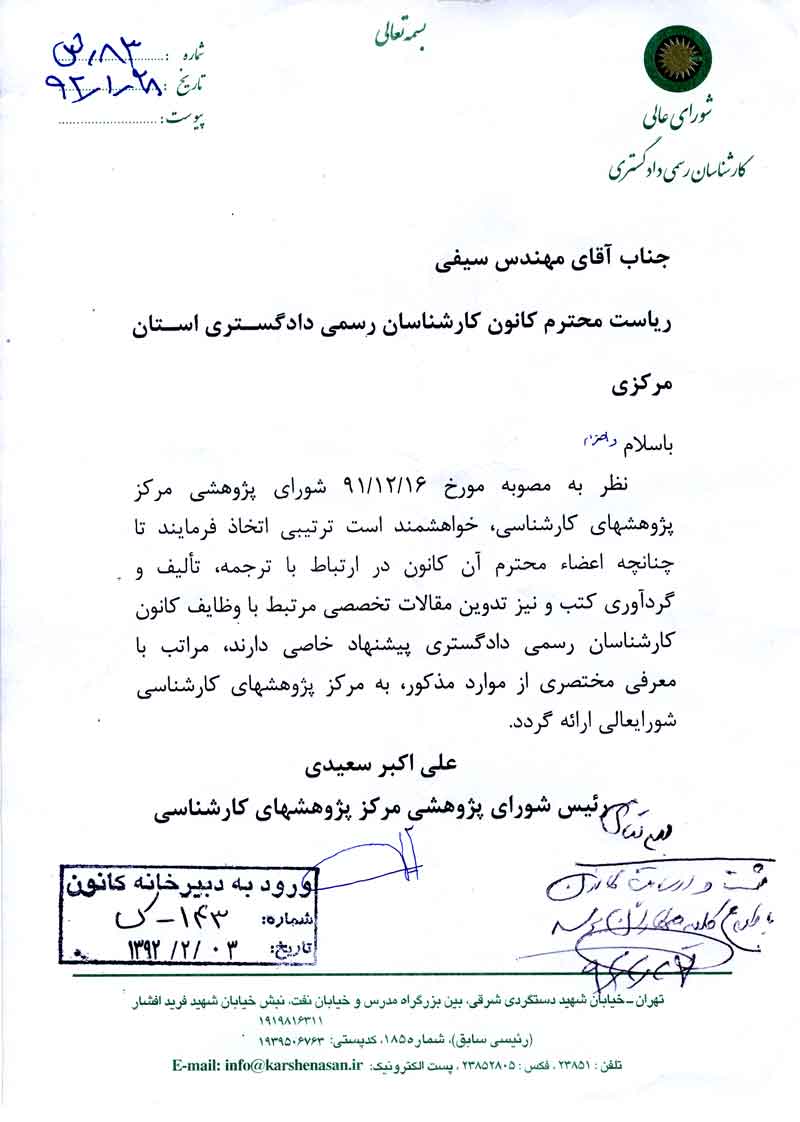 بسمه تعالی
شورای عالی
کارشناسان رسمی دادگستری
شماره :
تاریخ : ۹۲/۱/۲۸
پیوست :
جناب آقای مهندس سیفی
ریاست محترم کانون کارشناسان رسمی دادگستری استان
مرکزی
باسلام و احترام
نظر به مصوبه مورخ ۹۱/۱۲/۱۶ شورای پژوهشی مرکز
پژوهشهای کارشناسی، خواهشمند است ترتیبی اتخاذ فرمایند تا
چنانچه اعضاء محترم آن کانون در ارتباط با ترجمه، تألیف و
گردآوری کتب و نیز تدوین مقالات تخصصی مرتبط با وظایف کانون
کارشناسان رسمی دادگستری پیشنهاد خاصی دارند، مراتب با
معرفی مختصری از موارد مذکور، به مرکز پژوهشهای کارشناسی
شورایعالی ارائه گردد.
علی اکبر سعیدی
رئیس شورای پژوهشی مرکز پژوهشهای کارشناسی
ورود به دبیرخانه کانون
شماره: ۱۴۳-ک
تاریخ: ۱۳۹۲/۲/۰۳
تهران-خیابان شهید دستگردی شرقی، بین بزرگراه مدرس و خیابان نفت، نبش خیابان شهید فرید افشار
۱۹۱۹۸۱۶۳۱۱
(رئیسی سابق)، شماره ۱۸۵، کدپستی: ۱۹۳۹۵۰۶۷۶۳
تلفن : ۲۳۸۵۱ ، فکس : ۲۳۸۵۲۸۰۵ ، پست الکترونیک: E-mail: info@karshenasan.ir